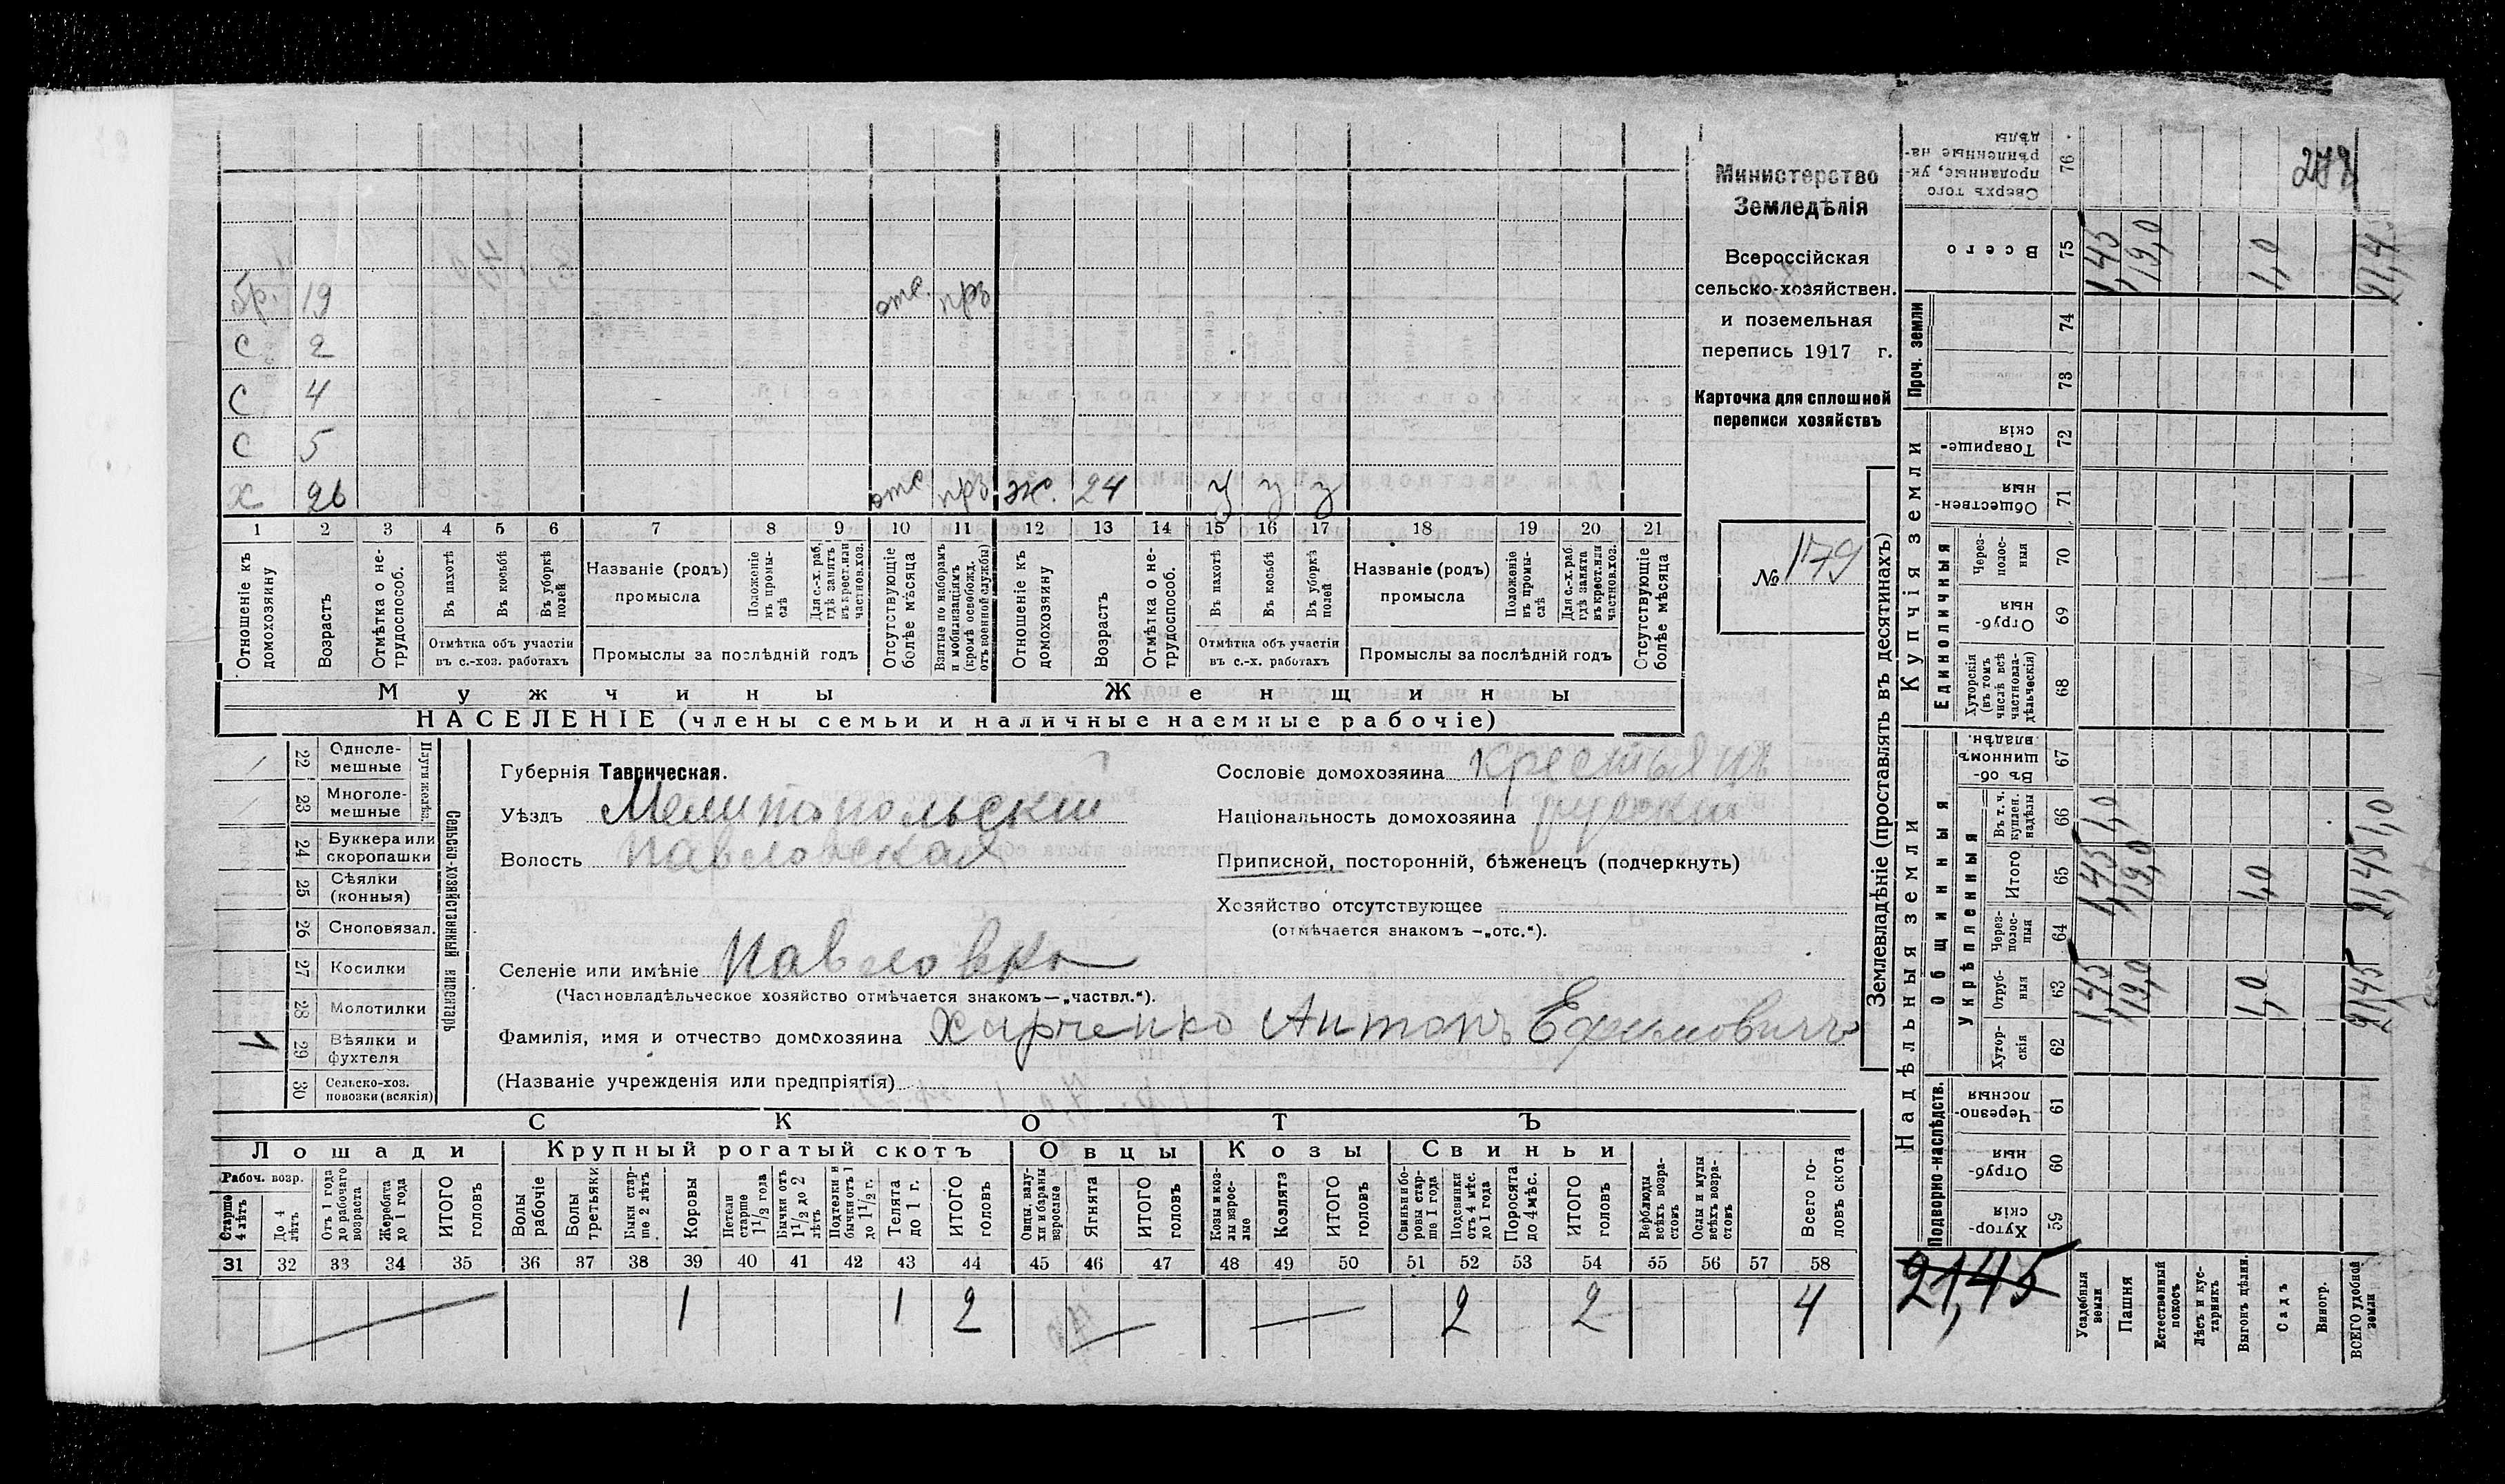 бр. 19 отс. прз
с 2
с 4
с 5
х 26 отс прз ж. 24 у у у
1 2 3 4 5 6 7 8 9 10 11 12 13 14 15 16 17 18 19 20 21
Отношеніе къ домохозяину
Возрастъ
Отмѣтка о не-
трудоспособ.
Въ пахотѣ
Въ косьбѣ
Въ уборкѣ полей
Отмѣтка объ участіи
въ с.-хоз. работахъ
Названіе (родъ)
промысла
Положеніе въ промы-
слѣ
Для с.-х. раб. гдѣ занятъ въ крест. или частнов. хоз.
Промыслы за послѣдній годъ
Отсутствующіе болѣе мѣсяца
Взятые по наборамъ и мобилизаціямъ (кромѣ освобожд. отъ военной службы)
Отношеніе къ домохозяину
Возрастъ
Отмѣтка о не-
трудоспособ.
Въ пахотѣ
Въ косьбѣ
Въ уборкѣ полей
Отмѣтка объ участіи
въ с.-х. работахъ
Названіе (родъ)
промысла
Положеніе въ промы-
слѣ
Для с.-х. раб. гдѣ занята въ крест. или частнов. хоз.
Промыслы за послѣдній годъ
Отсутствующіе болѣе мѣсяца
Мужчины Женщины
НАСЕЛЕНІЕ (члены семьи и наличные наемные рабочіе)
Министерство
Земледѣлія
Всероссійская
сельско-хозяйствен.
и поземельная
перепись 1917 г.
Карточка для сплошной
переписи хозяйствъ
№ 179
Губернія Таврическая.
Уѣздъ Мелитопольскій
Волость Павловская
Селеніе или имѣніе Павловка
(Частновладѣльческое хозяйство отмѣчается знакомъ—„частвл.“).
Фамилія, имя и отчество домохозяина Харченко Антонъ Ефимовичъ
(Названіе учрежденія или предпріятія)
Сословіе домохозяина крестьянъ
Національность домохозяина русскій
Приписной, посторонній, бѣженецъ (подчеркнуть)
Хозяйство отсутствующее
(отмѣчается знакомъ —„отс.“).
Сельско-хозяйственный инвентарь
Плуги желѣзн.
22 Одноле-
мешные
23 Многоле-
мешные
24 Буккера или
скоропашки
25 Сѣялки
(конныя)
26 Сноповязал.
27 Косилки
28 Молотилки
29 Вѣялки и
фухтеля
1
30 Сельско-хоз.
повозки (всякія)
СКОТЪ
Лошади Крупный рогатый скотъ Овцы Козы Свиньи
Рабоч. возр.
Старше 4 лѣтъ
До 4 лѣтъ
Отъ 1 года до рабочаго возраста
Жеребята до 1 года
ИТОГО головъ
Волы рабочіе
Волы третьяки
Быки стар-
ше 2 лѣтъ
Коровы
Нетели старше 1 1/2 года
Бычки отъ 1 1/2 до 2 лѣтъ
Подтелки и бычки отъ 1 до 1 1/2 г.
Телята до 1 г.
ИТОГО головъ
Овцы, валу-
хи и бараны взрослые
Ягнята
ИТОГО головъ
Козы и коз-
лы взрос-
лые
Козлята
ИТОГО головъ
Свиньи и бо-
ровы стар-
ше 1 года
Подсвинки отъ 4 мѣс. до 1 года
Поросята до 4 мѣс.
ИТОГО головъ
Верблюды всѣхъ возра-
стовъ
Ослы и мулы всѣхъ возра-
стовъ
Всего го-
ловъ скота
31 32 33 34 35 36 37 38 39 40 41 42 43 44 45 46 47 48 49 50 51 52 53 54 55 56 57 58
1 1 2 2 2 4
Землевладѣніе (проставлять въ десятинахъ)
Надѣльныя земли
Купчія земли
Проч. земли
Подворно-наслѣдств.
Общинныя
Укрѣпленныя
Единоличныя
Хутор-
скія 59
Отруб-
ныя 60
Черезпо-
лосныя 61
Хутор-
скія 62
Отруб-
ныя 63
1,45 19,0 1,0 21,45
Через-
полос-
ныя 64
Итого 65
1,45 19,0 1,0 21,45
Въ т. ч. куплен. надѣлы 66
1,0 1,0
Въ об-
щинномъ владѣн. 67
Хуторскія (въ томъ числѣ всѣ частновла-
дѣльческія) 68
Отруб-
ныя 69
Через-
полос-
ныя 70
Обществен-
ныя 71
Товарище-
скія 72
73
74
Всего 75
1,45 19,0 1,0 21,4
Сверхъ того проданные, ук-
рѣпленные на-
дѣлы 76
21,45
Усадебныя земли
Пашня
Естественный покосъ
Лѣсъ и кус-
тарникъ
Выгонъ цѣлин.
Садъ
Виногр.
ВСЕГО удобной земли